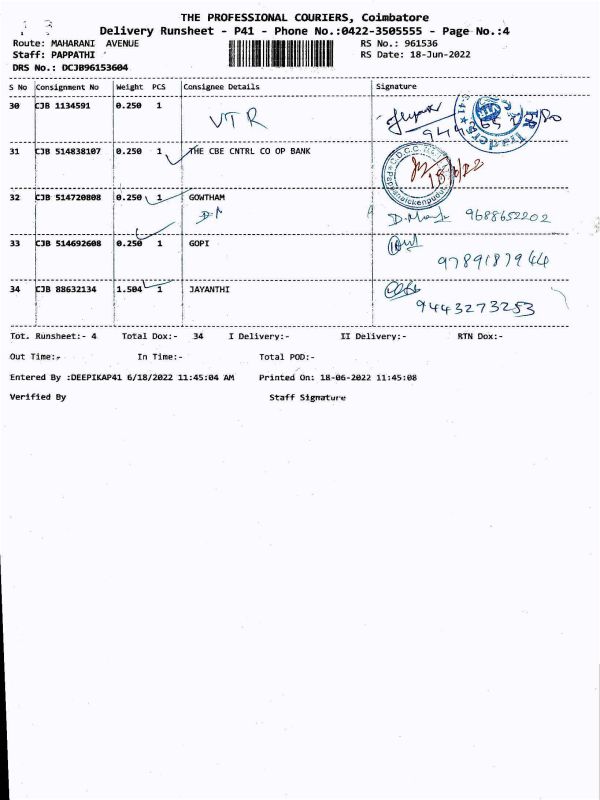 1 3
THE PROFESSIONAL COURIERS, Coimbatore
Delivery Runsheet - P41 - Phone No.:0422-3505555 - Page No.:4
Route: MAHARANI AVENUE RS No.: 961536
Staff: PAPPATHI RS Date: 18-Jun-2022
DRS No.: DCJB96153604
S No Consignment No Weight PCS Consignee Details Signature
30 CJB 1134591 0.250 1 VTR
31 CJB 514838107 0.250 1 THE CBE CNTRL CO OP BANK 18/6/22
32 CJB 514720808 0.250 1 GOWTHAM 9688652202
33 CJB 514692608 0.250 1 GOPI 9789187944
34 CJB 88632134 1.504 1 JAYANTHI 9443273253
Tot. Runsheet:- 4 Total Dox:- 34 I Delivery:- II Delivery:- RTN Dox:-
Out Time:- In Time:- Total POD:-
Entered By :DEEPIKAP41 6/18/2022 11:45:04 AM Printed On: 18-06-2022 11:45:08
Verified By Staff Signature